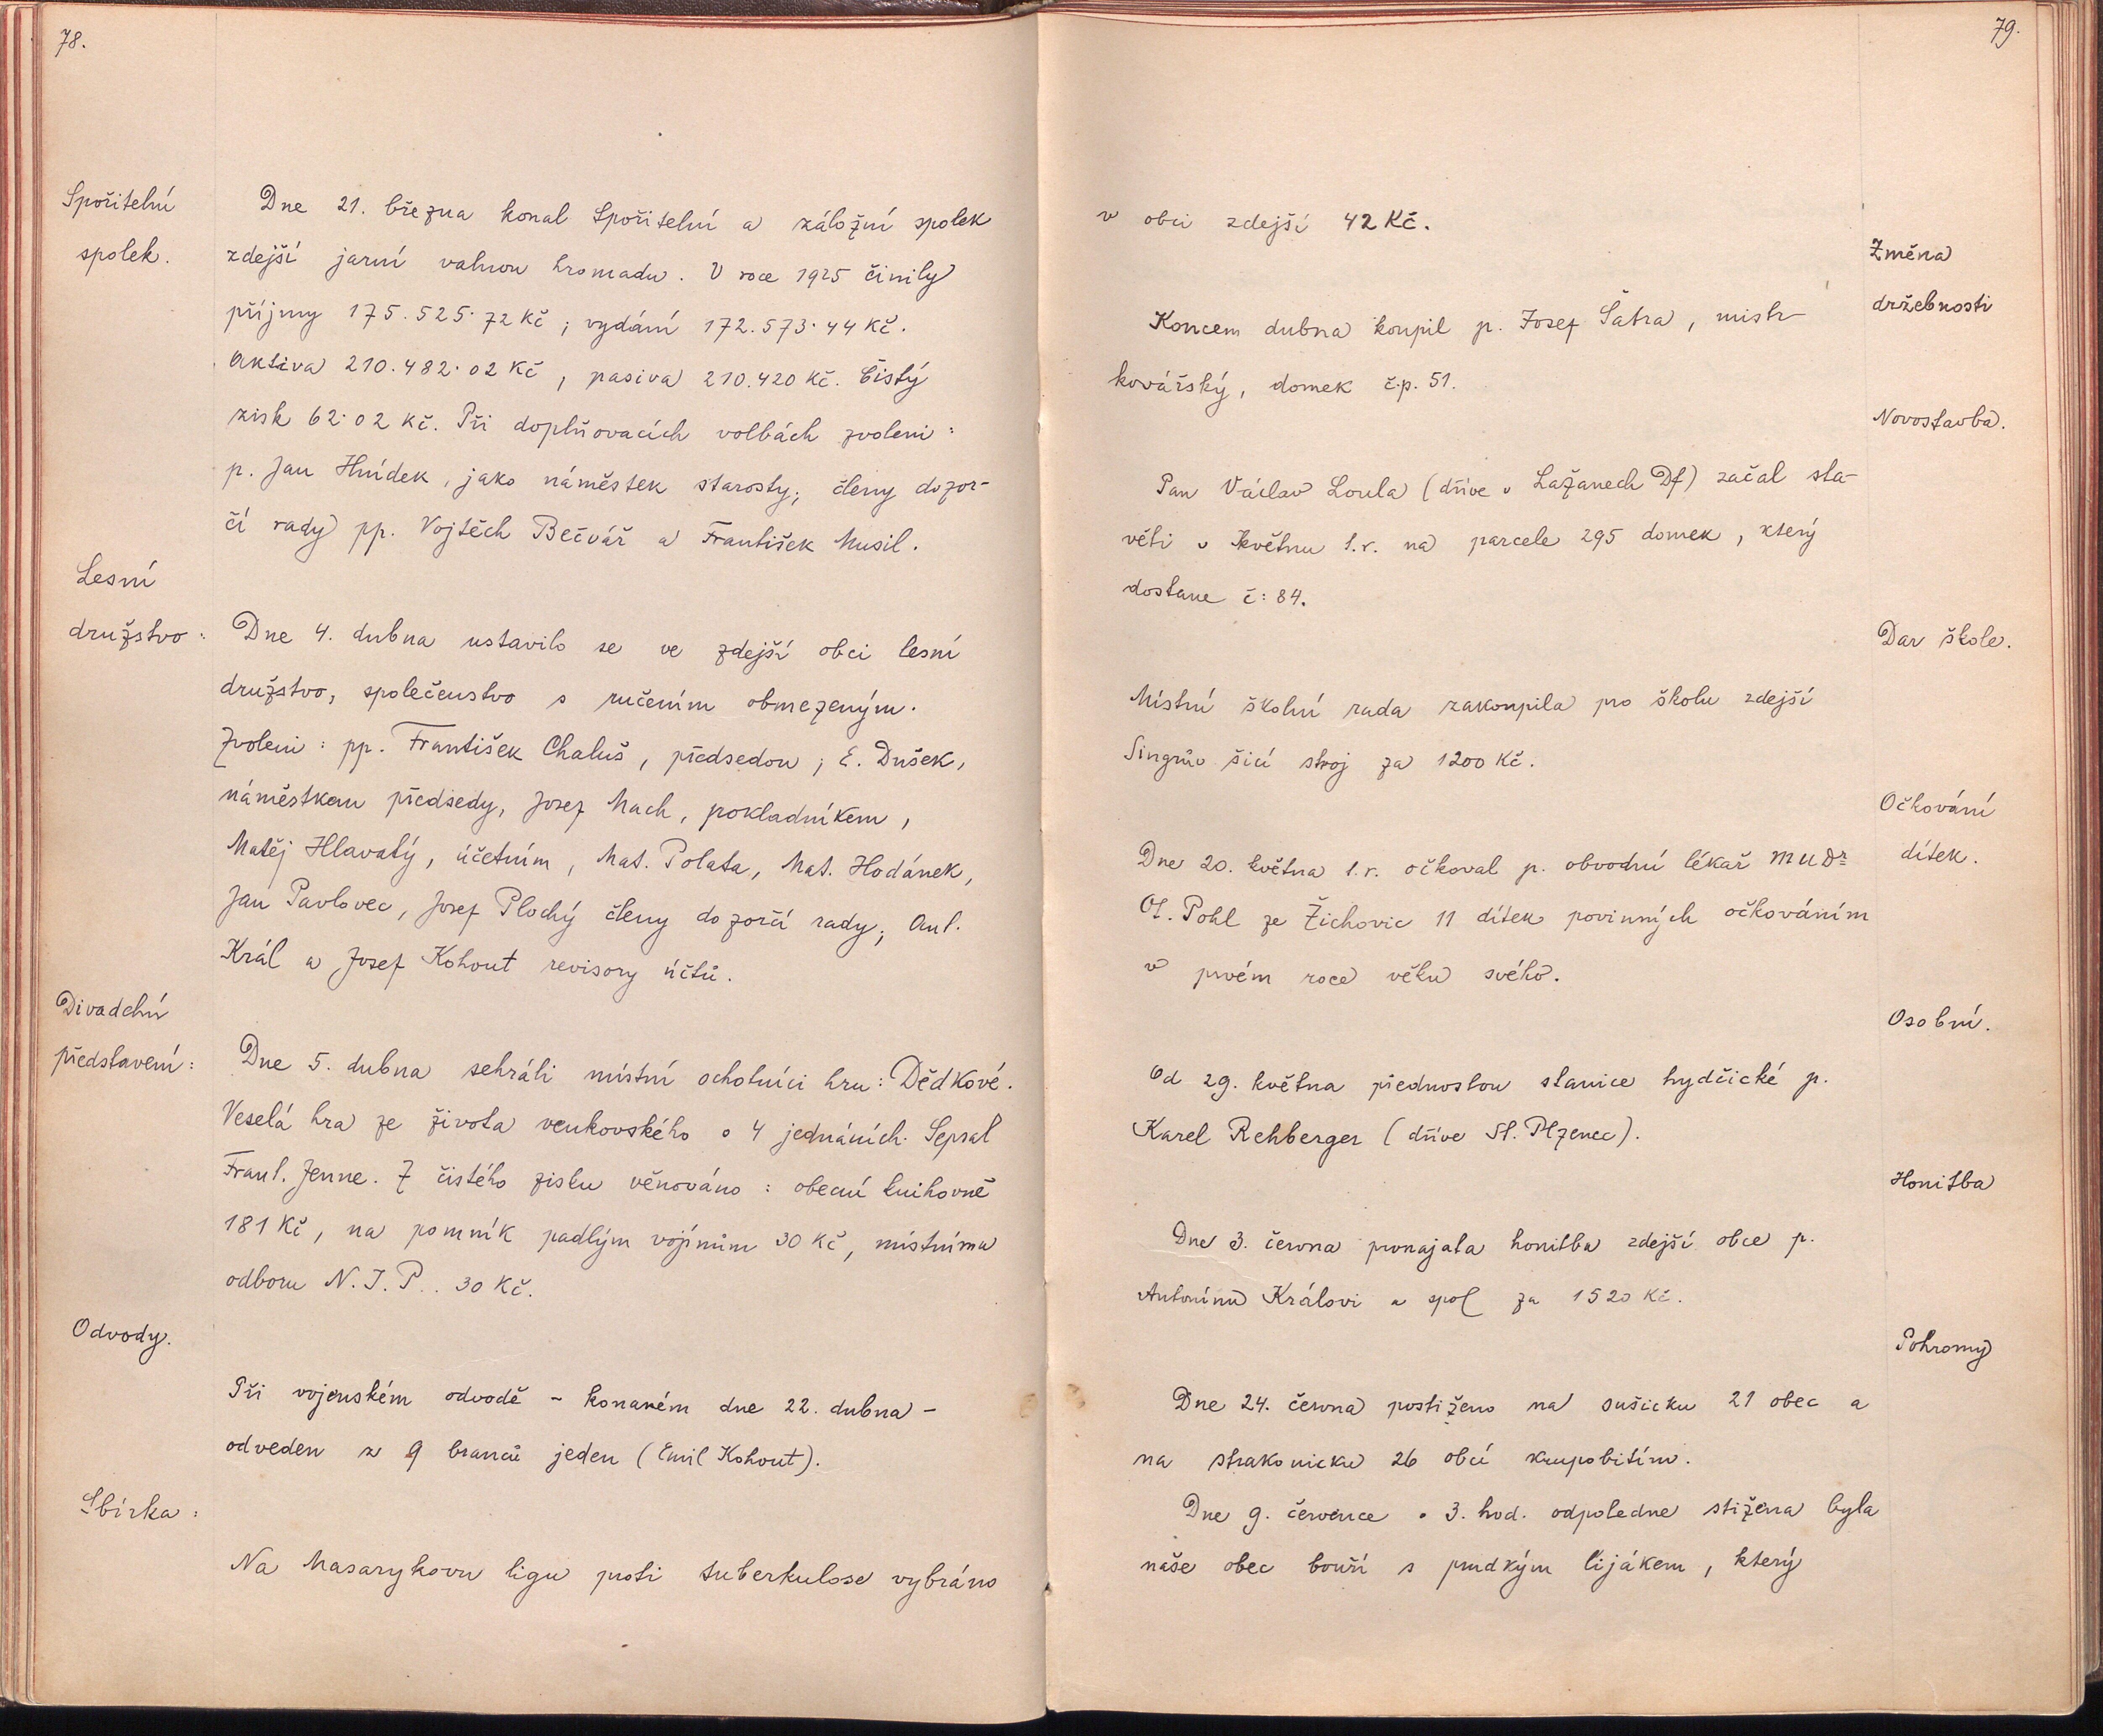 78.
Spořitelní
spolek.
Dne 21. března konal Spořitelní a záložní spolek
zdejší jarní valnou hromadu. V roce 1925 činily
příjmy 175.525·72 Kč ; vydání 172.573·44 Kč.
Aktiva 210.482·02 Kč , pasiva 210.420 Kč. Čistý
zisk 62·02 Kč. Při doplňovacích volbách zvoleni :
p. Jan Hnídek , jako náměstek starosty ; členy dozor-
čí rady pp. Vojtěch Bečvář a František Musil.
Lesní
družstvo :
Dne 4. dubna ustavilo se ve zdejší obci lesní
družstvo, společenstvo s ručením obmezeným.
Zvoleni : pp. František Chaluš , předsedou ; E. Dušek,
náměstkem předsedy, Josef Mach , pokladníkem ,
Matěj Hlavatý , účetním , Mat. Polata , Mat. Hodánek,
Jan Pavlovec , Josef Plochý členy dozorčí rady ; Ant.
Král a Josef Kohout revisory účtů.
Divadelní
představení :
Dne 5. dubna sehráli místní ochotníci hru : Dědkové.
Veselá hra ze života venkovského o 4 jednáních. Sepsal
Frant. Jenne. Z čistého zisku věnováno : obecní knihovně
181 Kč , na pomník padlým vojínům 30 Kč , místnímu
odboru N. J. P.. 30 Kč.
Odvody.
Při vojenském odvodě - konaném dne 22. dubna -
odveden z 9 branců jeden (Emil Kohout).
Sbírka :
Na Masarykovu ligu proti tuberkulose vybráno
79.
v obci zdejší 42 Kč.
Změna
držebnosti
Koncem dubna koupil p. Josef Šatra , mistr
kovářský , domek č.p. 51.
Novostavba.
Pan Václav Loula (dříve v Lažanech Df) začal sta-
věti v květnu l.r. na parcele 295 domek , který
dostane č: 84.
Dar škole.
Místní školní rada zakoupila pro školu zdejší
Singrův šicí stroj za 1200 Kč.
Očkování
dítek.
Dne 20. května l.r. očkoval p. obvodní lékař MUDr
Ot. Pohl ze Žichovic 11 dítek povinných očkováním
v prvém roce věku svého.
Osobní.
Od 29. května přednostou stanice hydčické p.
Karel Rehberger (dříve St. Plzenec).
Honitba
Dne 3. června pronajata honitba zdejší obce p.
Antonínu Královi a spol za 1520 Kč.
Pohromy
Dne 24. června postiženo na sušicku 21 obec a
na strakonicku 26 obcí krupobitím.
Dne 9. července o 3. hod. odpoledne stižena byla
naše obec bouří s prudkým lijákem , který